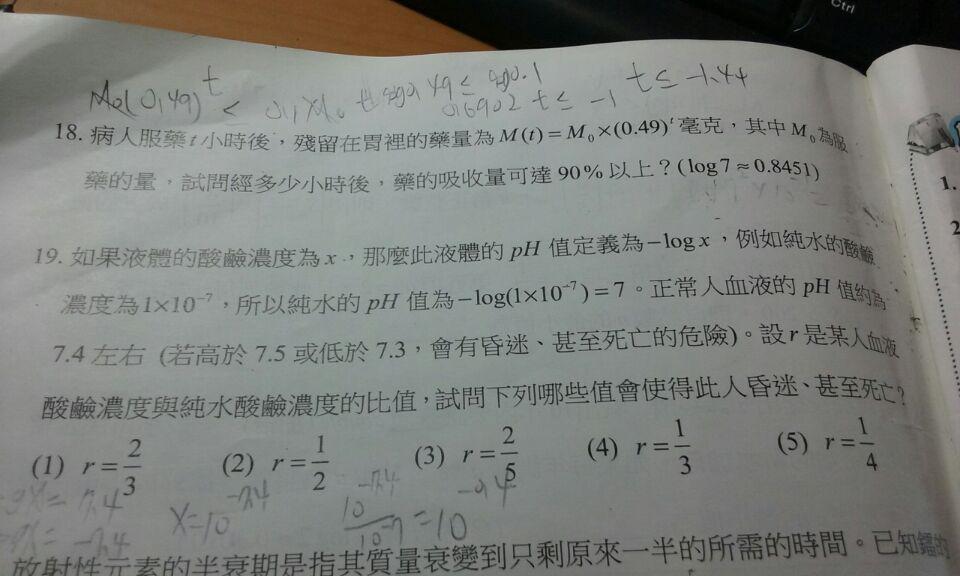 Ctrl
M₀(0.49)^t < 0.1×M₀ t log0.49 ≤ log0.1 t ≤ -1.44
0.6902 t ≤ -1
18. 病人服藥 t 小時後，殘留在胃裡的藥量為 M(t) = M₀×(0.49)^t 毫克，其中 M₀ 為服
藥的量，試問經多少小時後，藥的吸收量可達 90% 以上？(log 7 ≈ 0.8451)
1.
2
19. 如果液體的酸鹼濃度為 x，那麼此液體的 pH 值定義為 −log x，例如純水的酸鹼
濃度為 1×10⁻⁷，所以純水的 pH 值為 −log(1×10⁻⁷) = 7。正常人血液的 pH 值約為
7.4 左右 (若高於 7.5 或低於 7.3，會有昏迷、甚至死亡的危險)。設 r 是某人血液
酸鹼濃度與純水酸鹼濃度的比值，試問下列哪些值會使得此人昏迷、甚至死亡？
(1) r = 2/3 (2) r = 1/2 (3) r = 2/5 (4) r = 1/3 (5) r = 1/4
= 7.4 x = 10^-7.4 10^-7.4/10^-7 = 10^-0.4
= -7.4
放射性元素的半衰期是指其質量衰變到只剩原來一半的所需的時間。已知鐳的